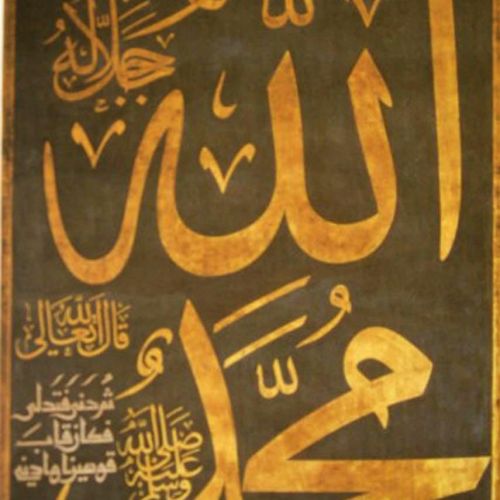 الله
جل جلاله
محمد
قال الله تعالى
ثم دنى فتدلى
فكان قاب
قوسين او ادنى
صلى الله
عليه
وسلم